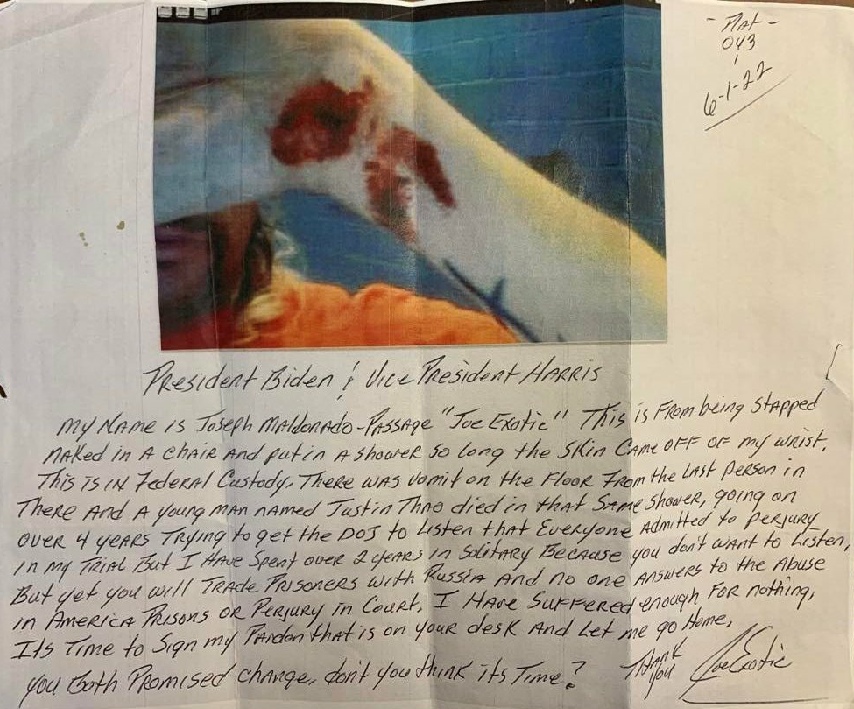 - Mat -
043
6-1-22
President Biden & Vice President Harris
My Name is Joseph Maldonado-Passage "Joe Exotic" This is From being Stapped
naked in a chair and put in a shower so long the skin came off of my wrist.
This is in Federal Custody. There was vomit on the Floor From the Last Person in
There And A young man named Justin Thao died in that Same Shower, going on
over 4 years Trying to get the DOJ to Listen that Everyone Admitted to perjury
in my Trial But I Have Spent over 2 years in Solitary Because you don't want to Listen,
But yet you will Trade Prisoners with Russia And no one answers to the Abuse
in America Prisons or Perjury in Court. I Have Suffered enough For nothing,
Its Time to Sign my Pardon that is on your desk And Let me go Home.
you Both Promised change, don't you think its Time? Thank
you Joe Exotic